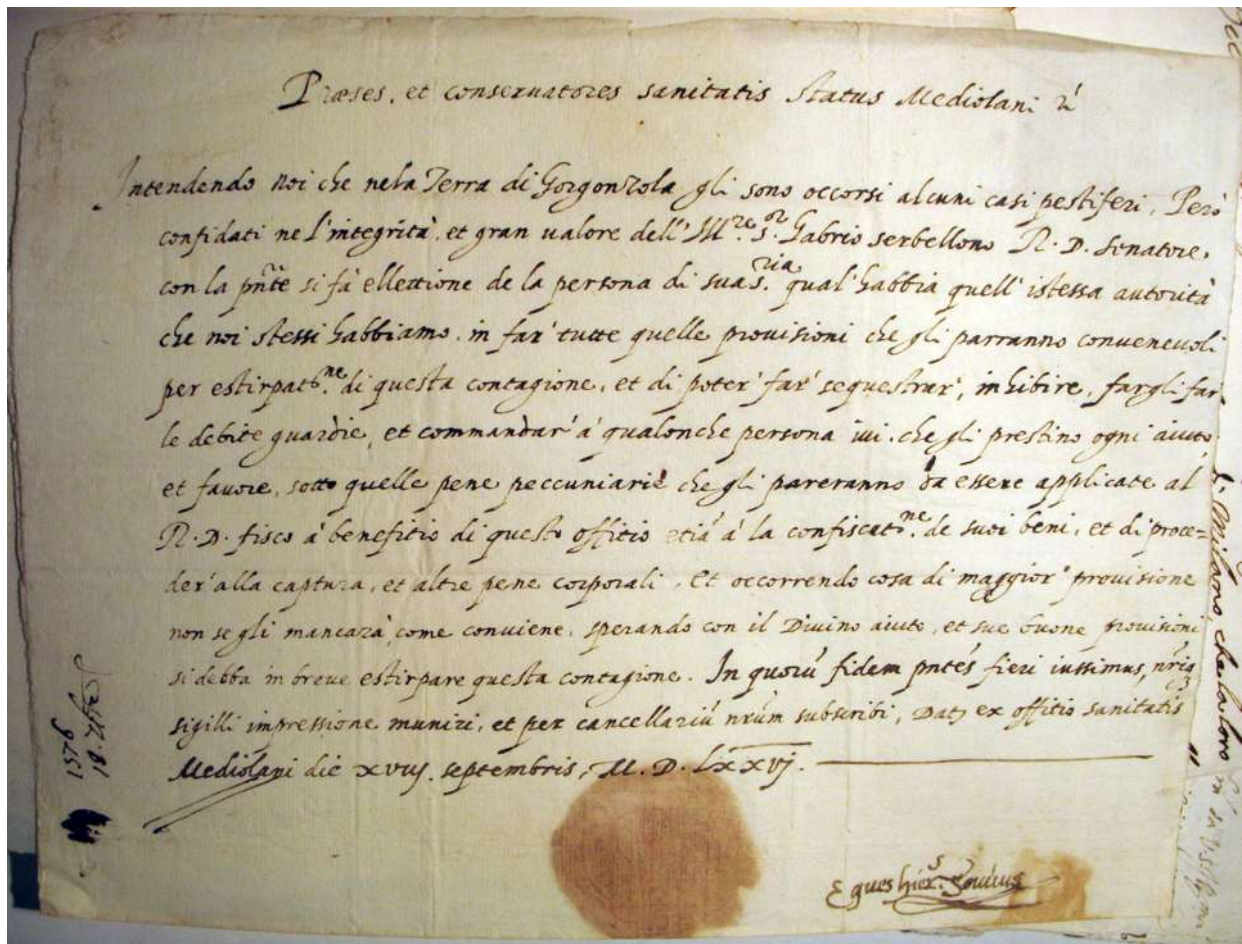 Præses, et conseruatores sanitatis status Mediolani
Intendendo noi che nela Terra di Gorgonzola gli sono occorsi alcuni casi pestiferi, Però
confidati ne l'integrità, et gran ualore dell' Ill.re s.or Gabrio serbellono R. D. senatore,
con la pnte si fà ellettione de la persona di sua s.ria qual' habbia quell' istessa autorità
che noi stessi habbiamo, in far' tutte quelle prouisioni che gli parranno conueneuoli
per estirpat.ne di questa contagione, et di poter' far' sequestrar', inhibire, fargli far
le debite guardie, et commandar' a' qualonche persona iui. che gli prestino ogni aiuto
et fauore, sotto quelle pene peccuniarie che gli pareranno da essere applicate al
R. D. fisco à benefitio di questo offitio etiã à la confiscat.ne de suoi beni, et di proce=
der' alla captura, et altre pene corporali. Et occorrendo cosa di maggior' prouisione
non se gli mancarà come conuiene, sperando con il Diuino aiuto, et sue buone prouisioni
si debba in breue estirpare questa contagione. In quorũ fidem pntes fieri iussimus, nriq
sigilli impressione muniri, et per cancellariũ nrum subscribi, Dat ex offitio sanitatis
Mediolani die xviij. septembris, M. D. Lxxvj.
Eques hier.s
1576
18